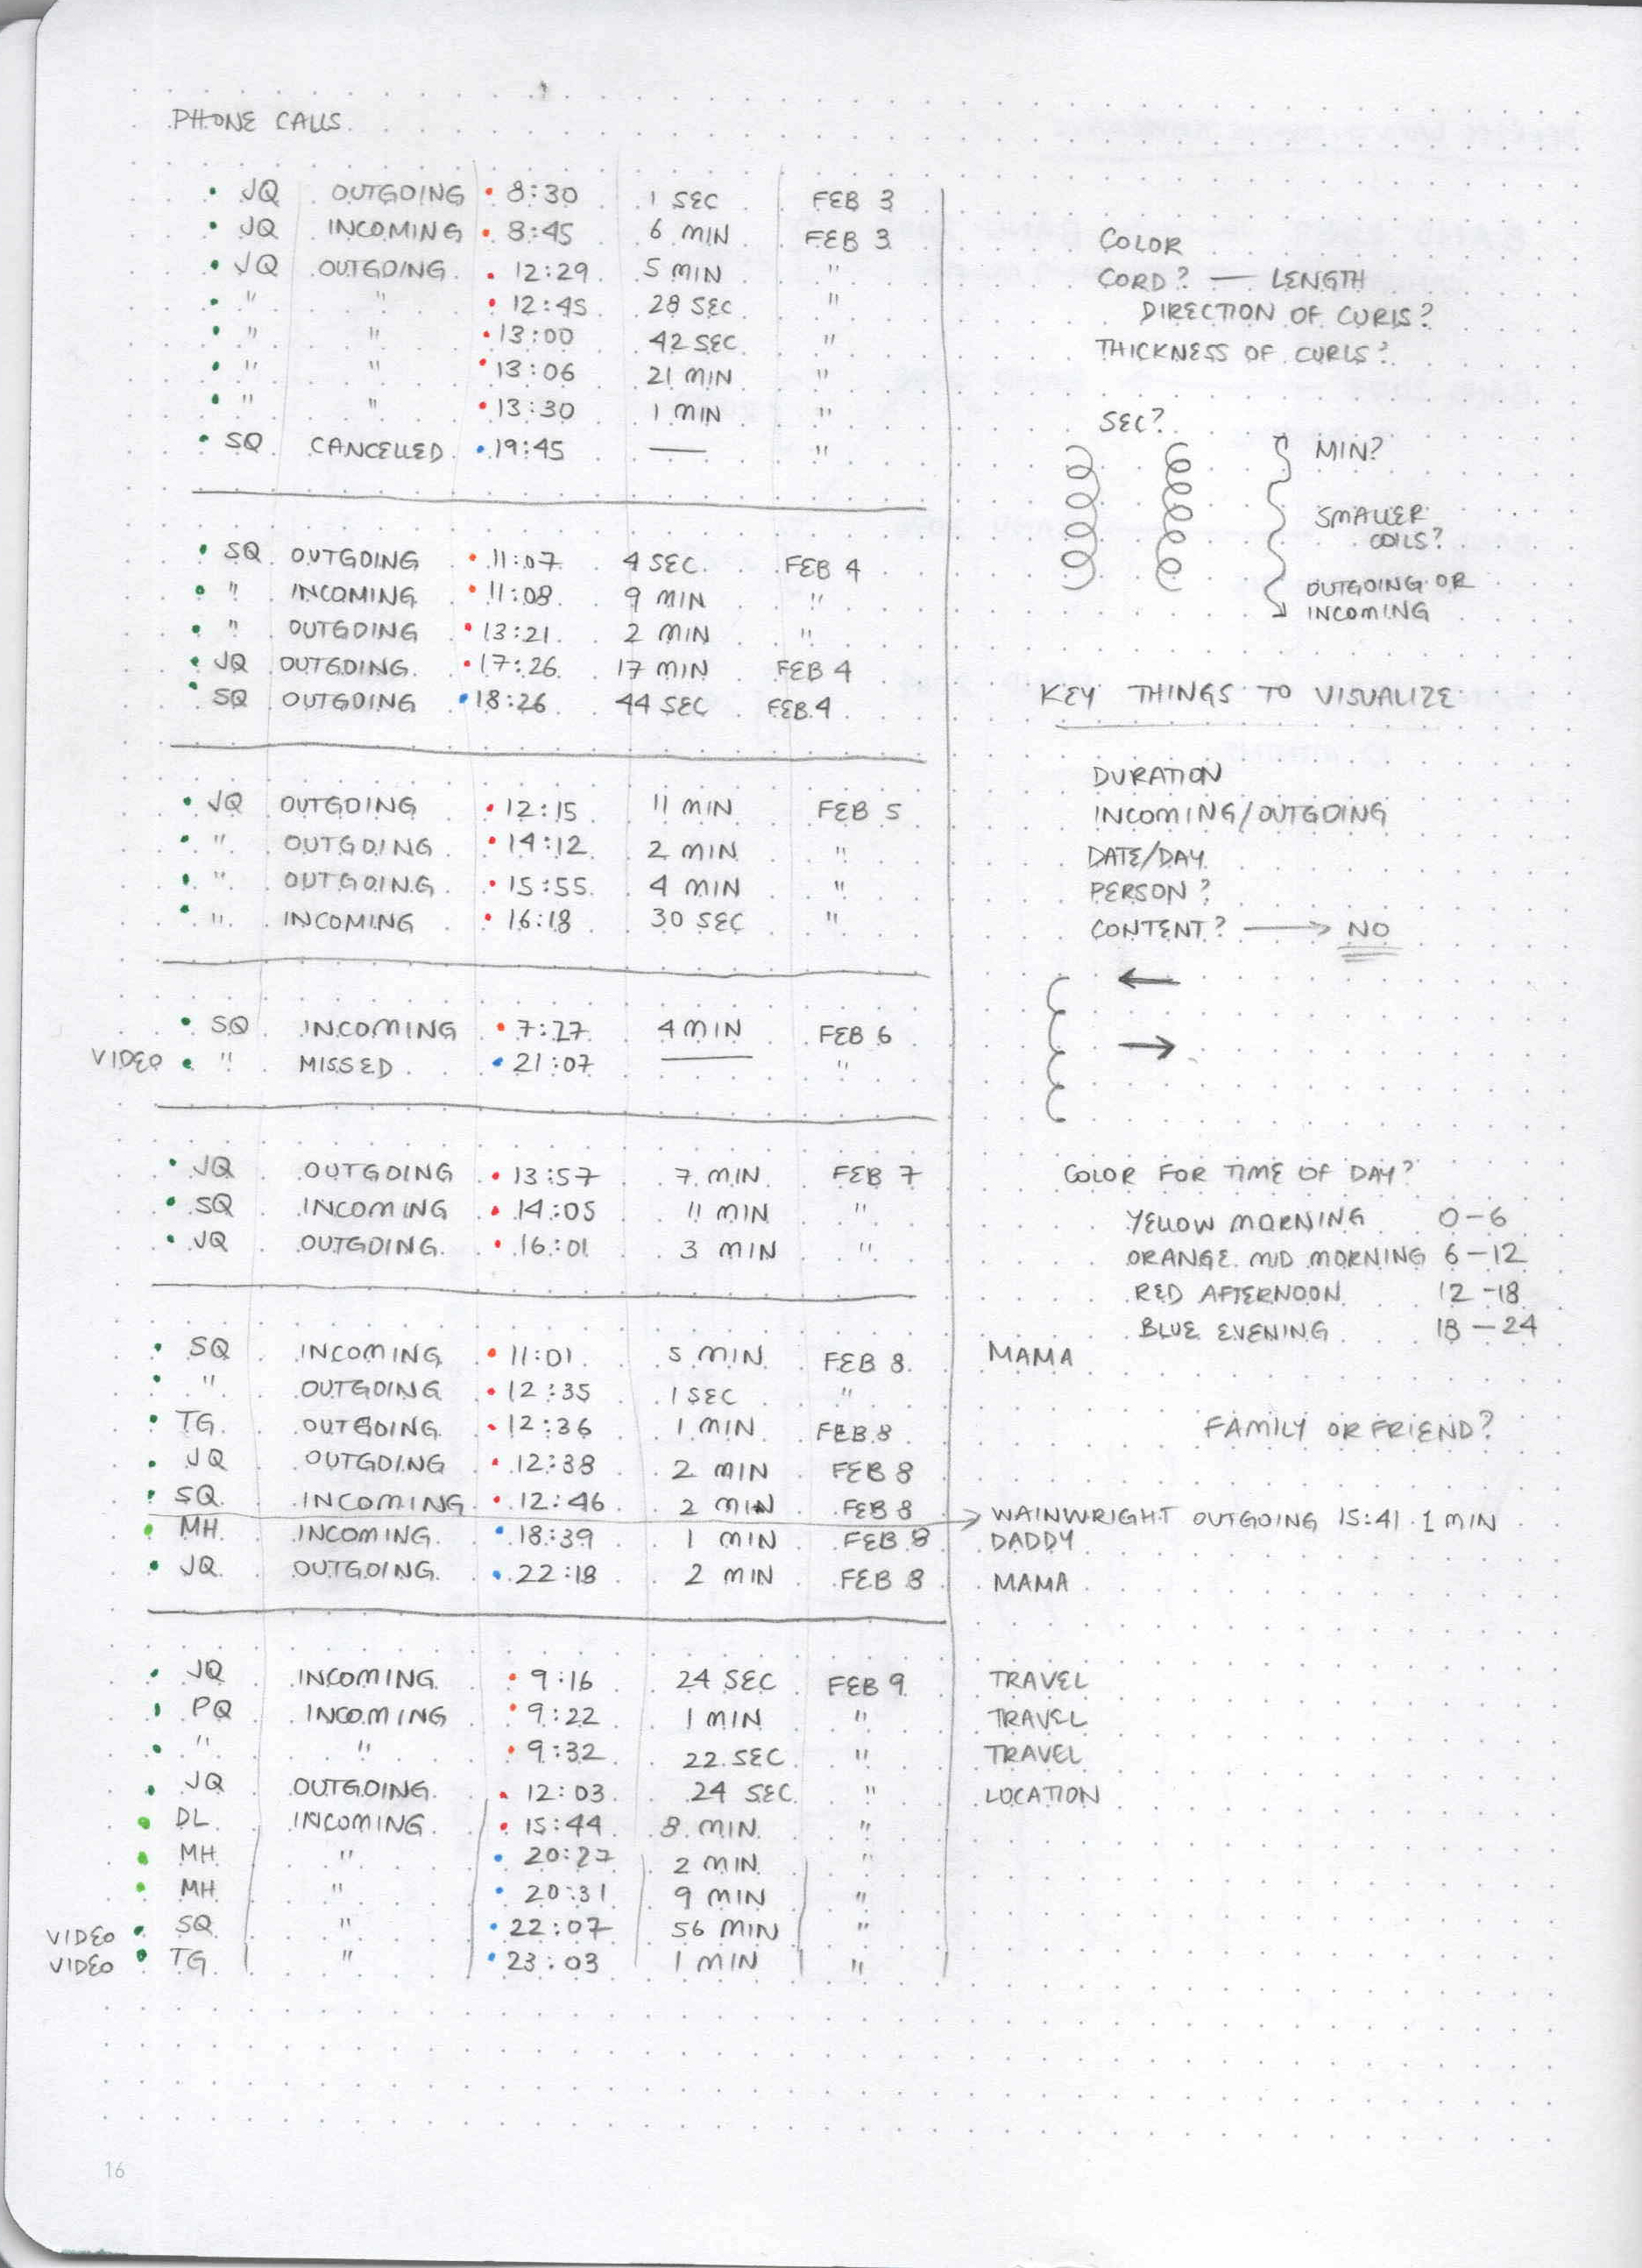 PHONE CALLS
JQ OUTGOING 8:30 1 SEC FEB 3
JQ INCOMING 8:45 6 MIN FEB 3
JQ OUTGOING 12:29 5 MIN "
" " 12:45 28 SEC "
" " 13:00 42 SEC "
" " 13:06 21 MIN "
" " 13:30 1 MIN "
SQ CANCELLED 19:45 — "
SQ OUTGOING 11:07 4 SEC FEB 4
" INCOMING 11:08 9 MIN "
" OUTGOING 13:21 2 MIN "
JQ OUTGOING 17:26 17 MIN FEB 4
SQ OUTGOING 18:26 44 SEC FEB 4
JQ OUTGOING 12:15 11 MIN FEB 5
" OUTGOING 14:12 2 MIN "
" OUTGOING 15:55 4 MIN "
" INCOMING 16:18 30 SEC "
SQ INCOMING 7:27 4 MIN FEB 6
VIDEO " MISSED 21:07 — "
JQ OUTGOING 13:57 7 MIN FEB 7
SQ INCOMING 14:05 11 MIN "
JQ OUTGOING 16:01 3 MIN "
SQ INCOMING 11:01 5 MIN FEB 8 MAMA
" OUTGOING 12:35 1 SEC "
TG OUTGOING 12:36 1 MIN FEB 8
JQ OUTGOING 12:38 2 MIN FEB 8
SQ INCOMING 12:46 2 MIN FEB 8
→ WAINWRIGHT OUTGOING 15:41 1 MIN
MH INCOMING 18:39 1 MIN FEB 8 DADDY
JQ OUTGOING 22:18 2 MIN FEB 8 MAMA
JQ INCOMING 9:16 24 SEC FEB 9 TRAVEL
PQ INCOMING 9:22 1 MIN " TRAVEL
" " 9:32 22 SEC " TRAVEL
JQ OUTGOING 12:03 24 SEC " LOCATION
DL INCOMING 15:44 8 MIN "
MH " 20:27 2 MIN "
MH " 20:31 9 MIN "
VIDEO SQ " 22:07 56 MIN "
VIDEO TG " 23:03 1 MIN "
COLOR
CORD? — LENGTH
DIRECTION OF CURLS?
THICKNESS OF CURLS?
SEC?
MIN?
SMALLER
COILS?
OUTGOING OR
INCOMING
KEY THINGS TO VISUALIZE
DURATION
INCOMING/OUTGOING
DATE/DAY
PERSON?
CONTENT? → NO
COLOR FOR TIME OF DAY?
YELLOW MORNING 0-6
ORANGE MID MORNING 6-12
RED AFTERNOON 12-18
BLUE EVENING 18-24
FAMILY OR FRIEND?
16